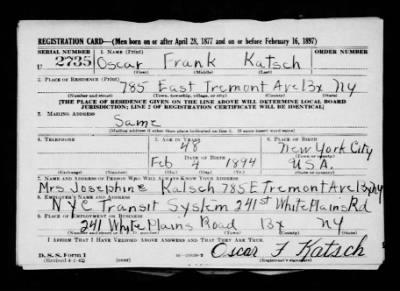 REGISTRATION CARD—(Men born on or after April 28, 1877 and on or before February 16, 1897)
SERIAL NUMBER 1. NAME (Print) ORDER NUMBER
U 2735 Oscar Frank Katsch
(First) (Middle) (Last)
2. PLACE OF RESIDENCE (Print)
785 East Tremont Ave Bx Ny
(Number and street) (Town, township, village, or city) (County) (State)
[THE PLACE OF RESIDENCE GIVEN ON THE LINE ABOVE WILL DETERMINE LOCAL BOARD
JURISDICTION; LINE 2 OF REGISTRATION CERTIFICATE WILL BE IDENTICAL]
3. MAILING ADDRESS
Same
(Mailing address if other than place indicated on line 2. If same insert word same)
4. TELEPHONE 5. AGE IN YEARS 6. PLACE OF BIRTH
48 New York City
DATE OF BIRTH
Feb 4 1894 U.S.A.
7. NAME AND ADDRESS OF PERSON WHO WILL ALWAYS KNOW YOUR ADDRESS
Mrs Josephine Katsch 785 E Tremont Ave Bx Ny
8. EMPLOYER'S NAME AND ADDRESS
NYC Transit System 241st White Plains Rd
9. PLACE OF EMPLOYMENT OR BUSINESS
241 Whyte Plains Road Bx Ny
(Number and street or R. F. D. number) (Town) (County) (State)
I AFFIRM THAT I HAVE VERIFIED ABOVE ANSWERS AND THAT THEY ARE TRUE.
D. S. S. Form 1 Oscar F Katsch
(Revised 4-1-42) (Registrant's signature)